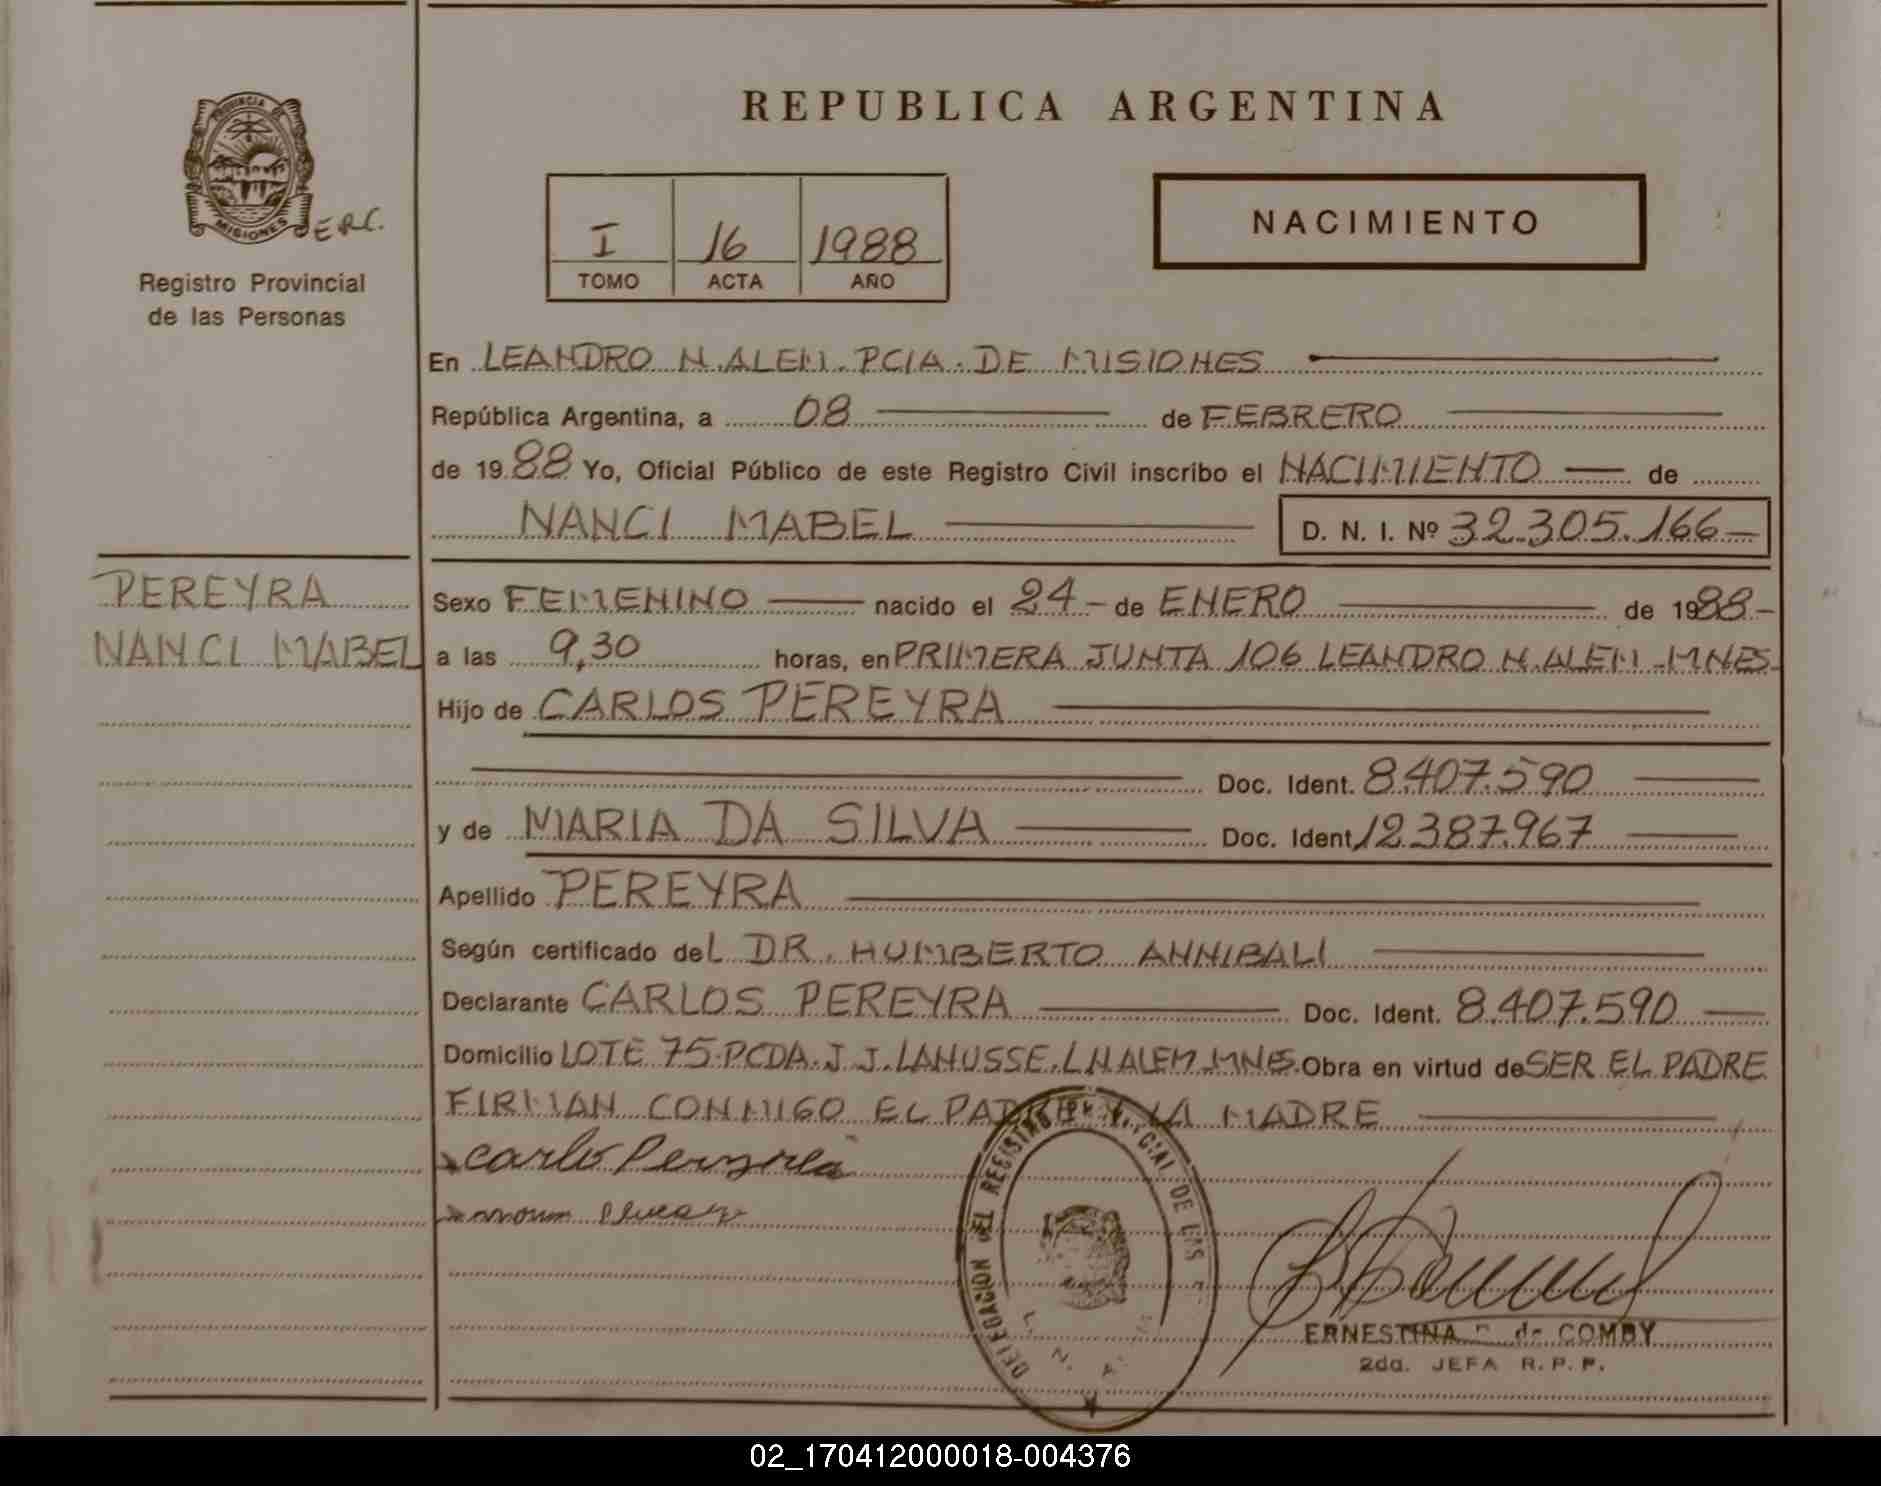 REPUBLICA ARGENTINA
PROVINCIA DE MISIONES
E.R.C.
Registro Provincial
de las Personas
I 16 1988
TOMO ACTA AÑO
NACIMIENTO
En LEANDRO N. ALEM. PCIA. DE MISIONES
República Argentina, a 08 de FEBRERO
de 1988 Yo, Oficial Público de este Registro Civil inscribo el NACIMIENTO de
NANCI MABEL D. N. I. Nº 32.305.166
PEREYRA
NANCI MABEL
Sexo FEMENINO nacido el 24 de ENERO de 1988
a las 9,30 horas, en PRIMERA JUNTA 106 LEANDRO N. ALEM - MNES
Hijo de CARLOS PEREYRA
Doc. Ident. 8.407.590
y de MARIA DA SILVA Doc. Ident. 12.387.967
Apellido PEREYRA
Según certificado del DR. HUMBERTO ANNIBALI
Declarante CARLOS PEREYRA Doc. Ident. 8.407.590
Domicilio LOTE 75-PCDA. J.J. LANUSSE. L N ALEM. MNES. Obra en virtud de SER EL PADRE
FIRMAN CONMIGO EL PADRE Y LA MADRE
carlo Pereyra
DELEGACION DEL REGISTRO PROVINCIAL DE LAS
L. N. A
ERNESTINA de COMBY
2da. JEFA R. P. P.
02_170412000018-004376